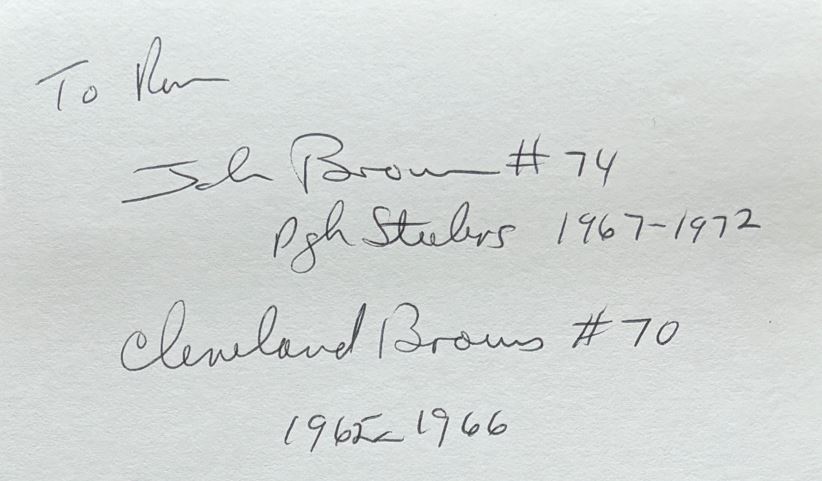 To Ron
John Brown #74
Pgh Steelers 1967-1972
Cleveland Browns #70
1965-1966